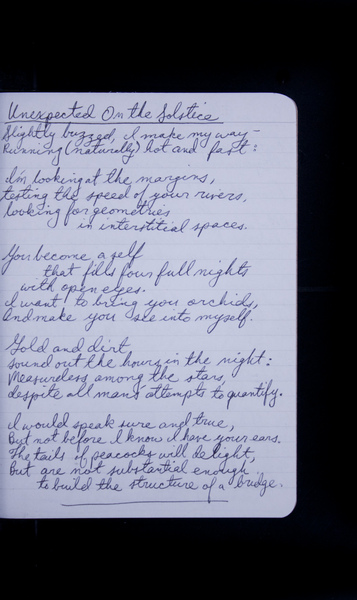 Unexpected On the Solstice
Slightly buzzed, I make my way –
Running (naturally) hot and fast:
I'm looking at the margins,
testing the speed of your rivers,
looking for geometries
in interstitial spaces.
You become a self
that fills four full nights
with open eyes.
I want to bring you orchids,
and make you see into myself.
Gold and dirt
sound out the hours in the night:
Measureless among the stars,
despite all mans' attempts to quantify.
I would speak sure and true,
But not before I know I have your ears.
The tails of peacocks will delight,
But are not substantial enough
to build the structure of a bridge.